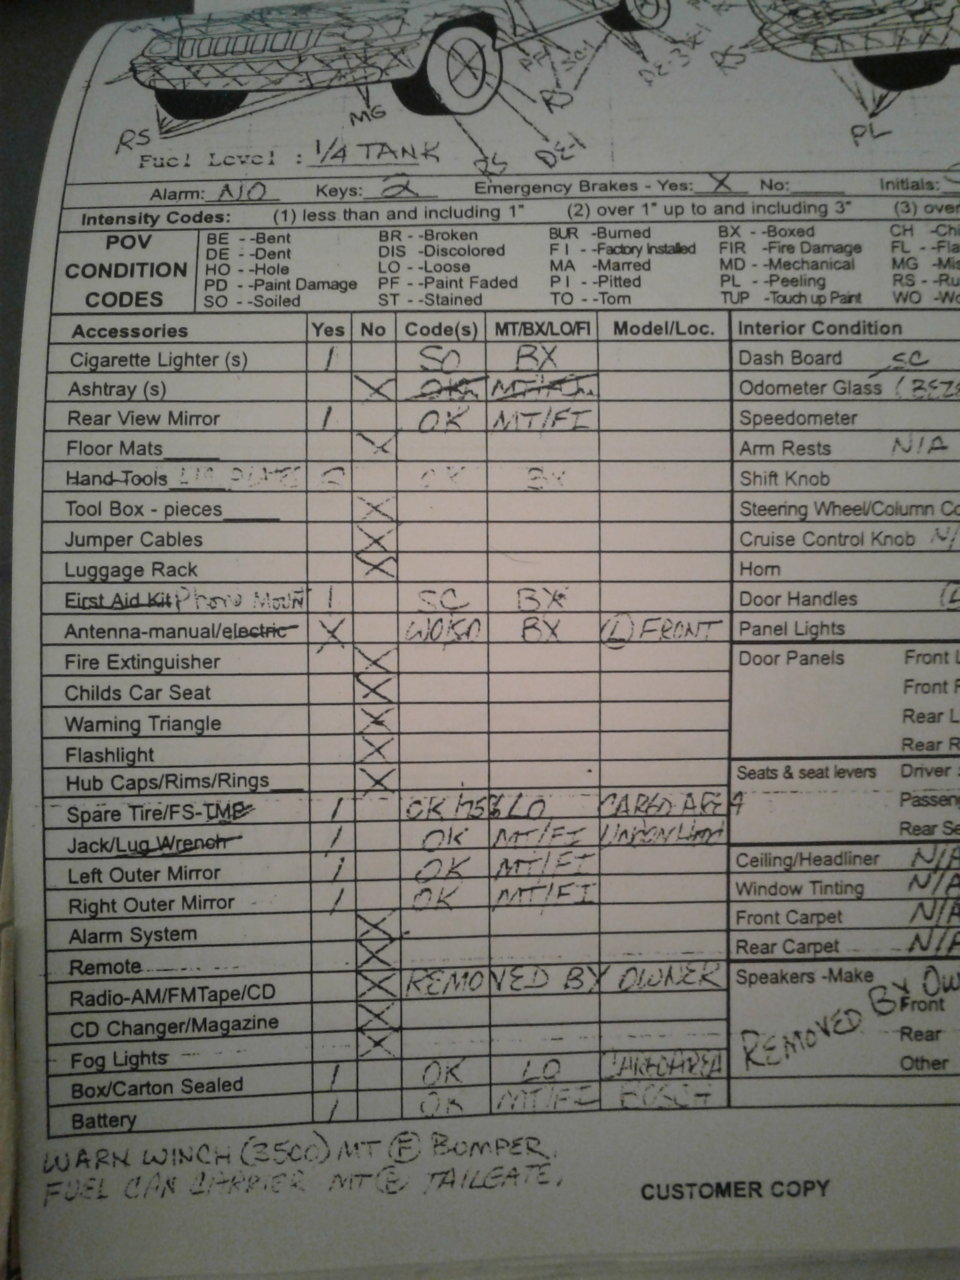 RS MG RS DE-1 PL
Fuel Level : 1/4 TANK
Alarm: NO Keys: 2 Emergency Brakes - Yes: X No: Initials:
Intensity Codes: (1) less than and including 1" (2) over 1" up to and including 3" (3) over
POV CONDITION CODES
BE - -Bent BR - -Broken BUR -Burned BX - -Boxed CH
DE - -Dent DIS -Discolored F I - -Factory Installed FIR -Fire Damage FL
HO - -Hole LO - -Loose MA -Marred MD - -Mechanical MG
PD - -Paint Damage PF - -Paint Faded P I - -Pitted PL - -Peeling RS
SO - -Soiled ST - -Stained TO - -Torn TUP -Touch up Paint WO
Accessories Yes No Code(s) MT/BX/LO/FI Model/Loc. Interior Condition
Cigarette Lighter (s) 1 SO BX Dash Board SC
Ashtray (s) X Odometer Glass
Rear View Mirror 1 OK MT/FI Speedometer
Floor Mats X Arm Rests N/A
Hand Tools 2 OK BX Shift Knob
Tool Box - pieces X Steering Wheel/Column
Jumper Cables X Cruise Control Knob
Luggage Rack X Horn
First Aid Kit PHONE MOUNT 1 SC BX Door Handles
Antenna-manual/electric X WO/SO BX (L) FRONT Panel Lights
Fire Extinguisher X Door Panels Front
Childs Car Seat X Front
Warning Triangle X Rear
Flashlight X Rear
Hub Caps/Rims/Rings X Seats & seat levers Driver
Spare Tire/FS-TMP 1 OK 75% LO CARGO AREA
Jack/Lug Wrench 1 OK MT/FI UNDER HOOD Rear
Left Outer Mirror 1 OK MT/FI Ceiling/Headliner N/A
Right Outer Mirror 1 OK MT/FI Window Tinting N/A
Alarm System X Front Carpet N/A
Remote X Rear Carpet N/A
Radio-AM/FMTape/CD X REMOVED BY OWNER Speakers -Make REMOVED BY
CD Changer/Magazine X Front
Fog Lights X Rear
Box/Carton Sealed 1 OK LO CARGO AREA Other
Battery 1 OK MT/FI BOSCH
WARN WINCH (3500) MT (F) BUMPER.
FUEL CAN CARRIER MT (R) TAILGATE.
CUSTOMER COPY